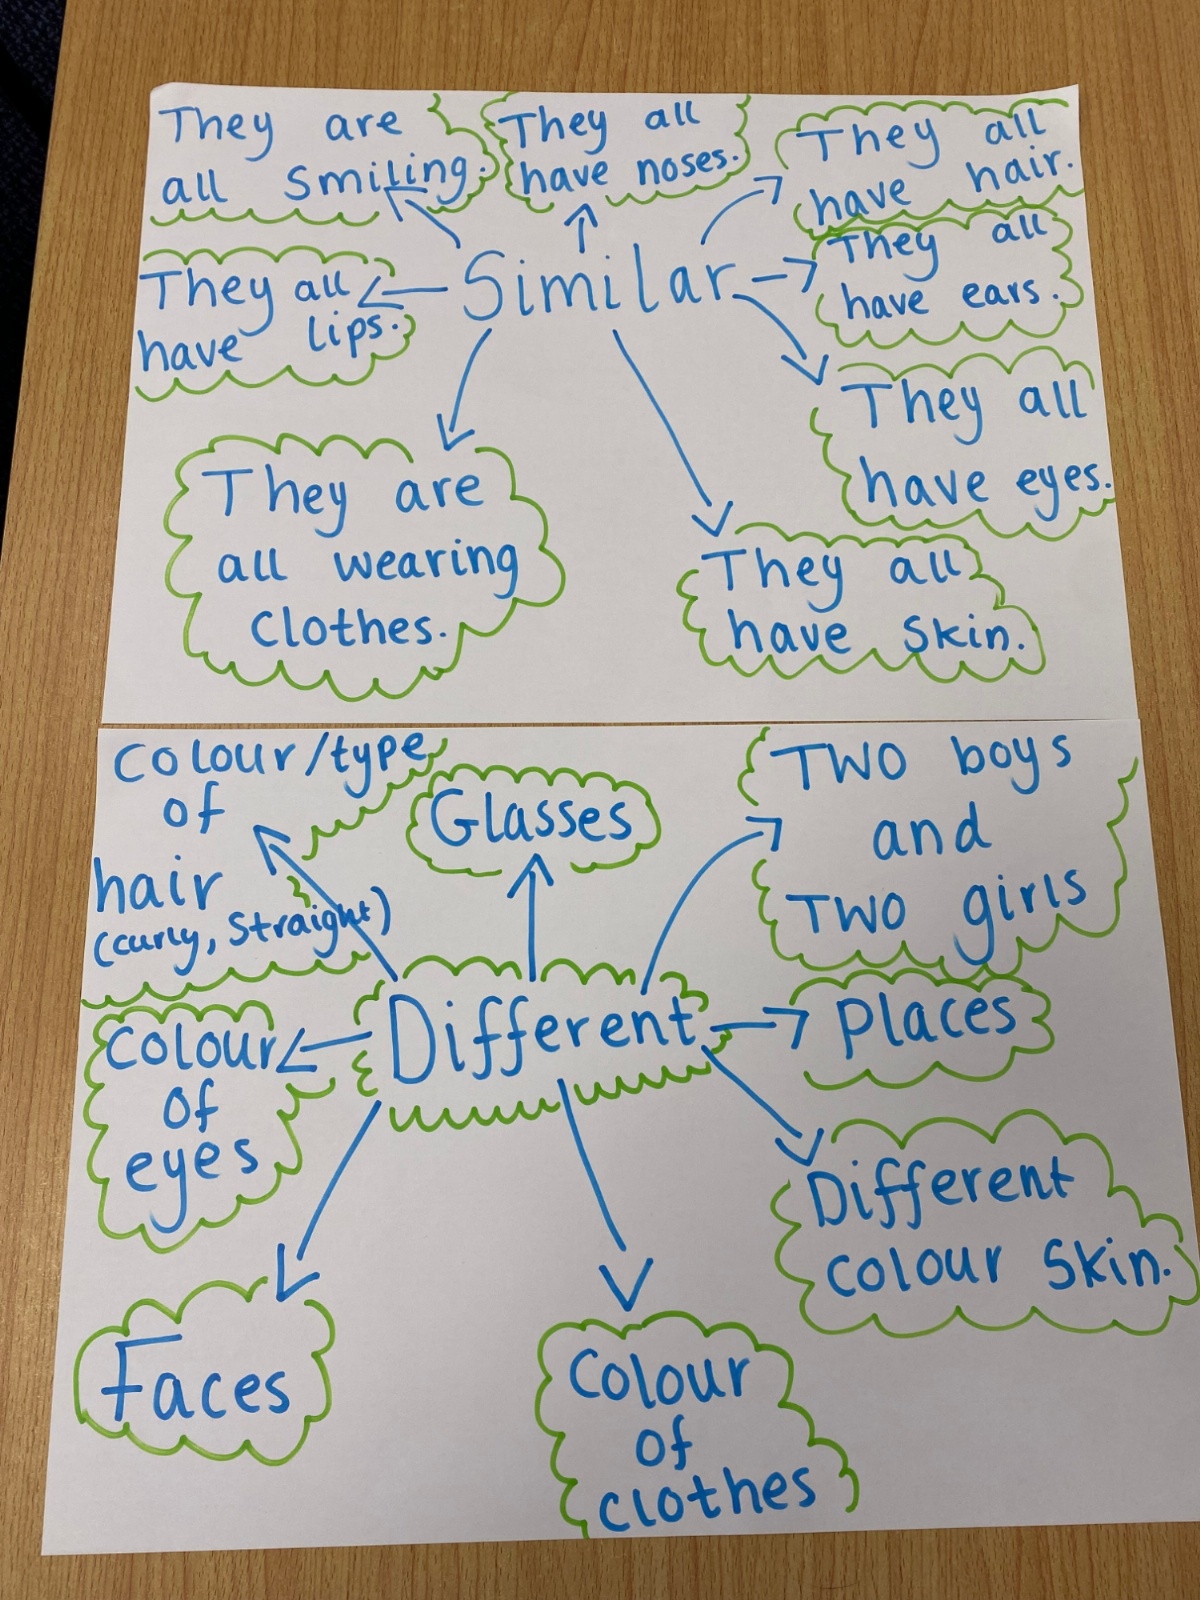 They are
all smiling.
They all
have noses.
They all
have hair.
They all
have lips.
Similar
They all
have ears.
They all
have eyes.
They are
all wearing
clothes.
They all
have skin.
Colour/type
of
hair
(curly, straight)
Glasses
Two boys
and
Two girls
Colour
of
eyes
Different
places
Different
colour skin.
Faces
Colour
of
clothes